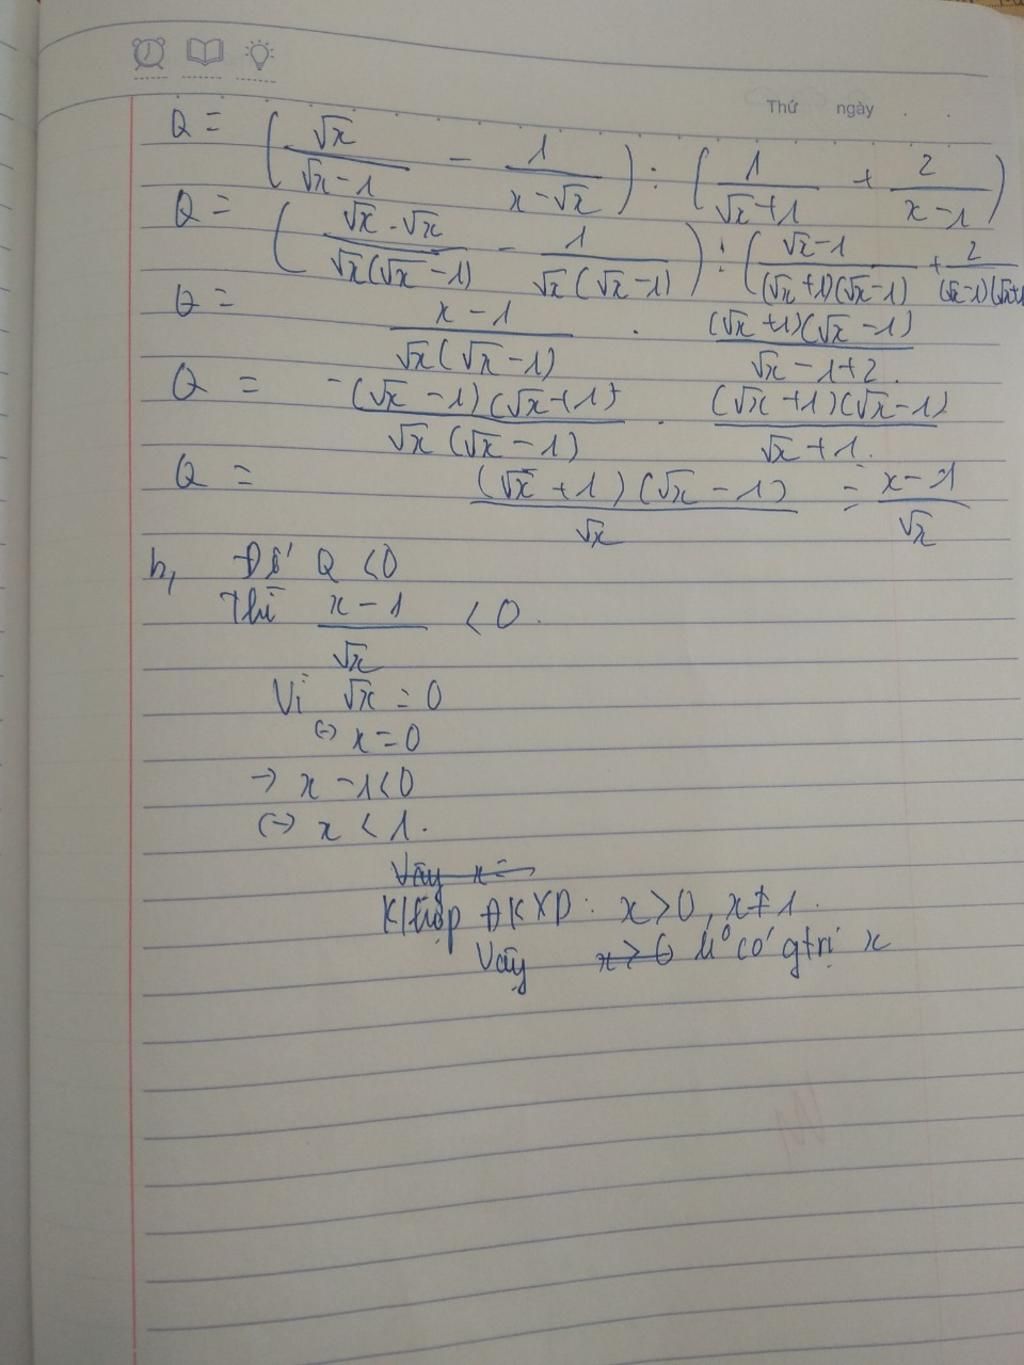 Thứ ngày
Q = (√x/(√x-1) - 1/(x-√x)) : (1/(√x+1) + 2/(x-1))
Q = (√x.√x/(√x(√x-1)) - 1/(√x(√x-1))) : ((√x-1)/((√x+1)(√x-1)) + 2/((√x-1)(√x+1)))
Q = (x-1)/(√x(√x-1)) . ((√x+1)(√x-1))/(√x-1+2).
Q = (√x-1)(√x+1)/(√x(√x-1)) . ((√x+1)(√x-1))/(√x+1).
Q = ((√x+1)(√x-1))/√x = (x-1)/√x
b, Để Q <0
Thì (x-1)/√x <0.
Vì √x = 0
(-) x=0
→ x-1<0
(-) x < 1.
Vậy x=
K/hợp ĐKXĐ: x>0, x≠1.
Vậy x>0 k⁰ có gtrị x